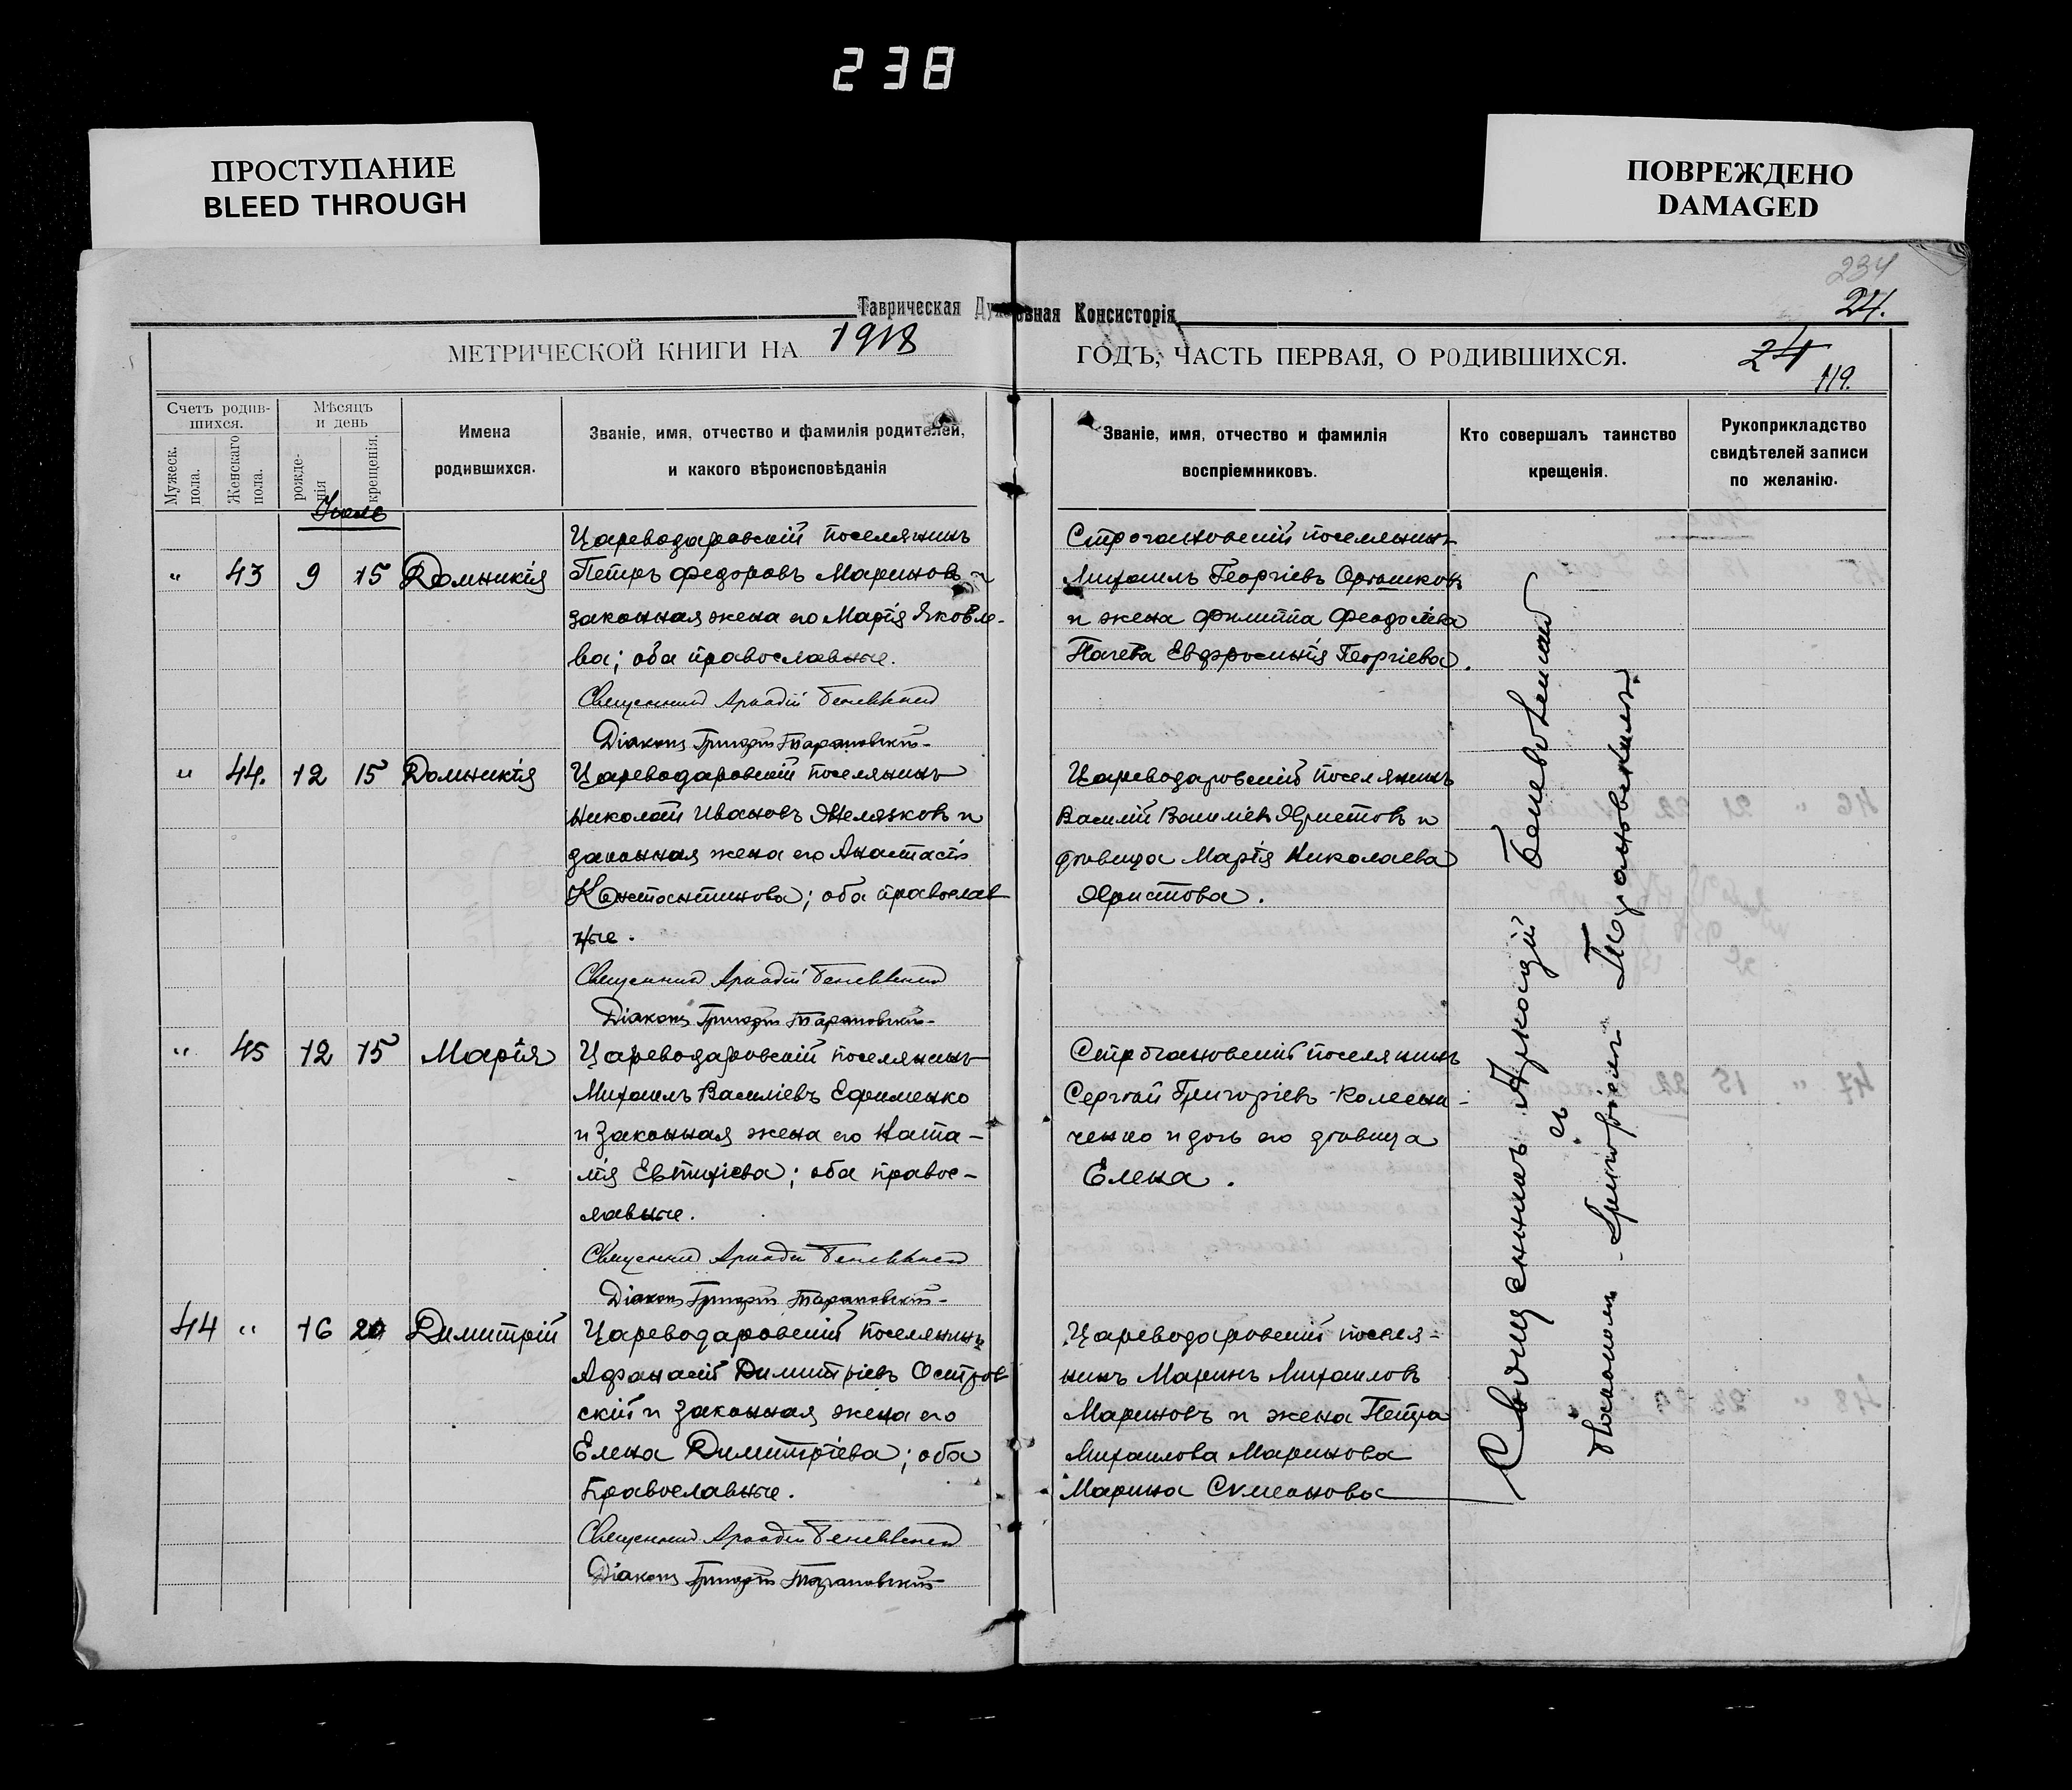 238
ПРОСТУПАНИЕ
BLEED THROUGH
ПОВРЕЖДЕНО
DAMAGED
234
24.
Таврическая Духовная Консисторія
МЕТРИЧЕСКОЙ КНИГИ НА 1918 ГОДЪ, ЧАСТЬ ПЕРВАЯ, О РОДИВШИХСЯ.
24
119.
Счетъ родив-
шихся.
Мужеск. пола.
Женскаго пола.
Мѣсяцъ
и день
рожде-
нія
крещенія.
Имена
родившихся.
Званіе, имя, отчество и фамилія родителей,
и какого вѣроисповѣданія
Званіе, имя, отчество и фамилія
воспріемниковъ.
Кто совершалъ таинство
крещенія.
Рукоприкладство
свидѣтелей записи
по желанію.
Іюль
" 43 9 15 Домникія
Цареводаровскій поселянинъ
Петръ Федоровъ Мариновъ и
законная жена его Марія Яковле-
ва; оба православные.
Священникъ Аркадій
Діаконъ Григорій Тарановскій
Строгановскій поселянинъ
Михаилъ Георгіевъ
и жена Филиппа
Евфросинія Георгіева.
" 44. 12 15 Домникія
Цареводаровскій поселянинъ
Николай Ивановъ Желязковъ и
законная жена его Анастасія
Константинова; оба православ
ные.
Священникъ Аркадій
Діаконъ Григорій Тарановскій
Цареводаровскій поселянинъ
Василій Василіевъ Христовъ и
дѣвица Марія Николаева
Христова.
" 45 12 15 Марія
Цареводаровскій поселянинъ
Михаилъ Василіевъ Ефименко
и законная жена его Ната-
лія Евтихіева; оба правос-
лавные.
Священникъ Аркадій
Діаконъ Григорій Тарановскій
Строгановскій поселянинъ
Сергѣй Григоріевъ Колесни-
ченко и дочь его дѣвица
Елена.
44 " 16 20 Димитрій
Цареводаровскій поселянинъ
Афанасій Димитріевъ Остров
скій и законная жена его
Елена Димитріева; оба
Православные.
Священникъ Аркадій
Діаконъ Григорій Тарановскій
Цареводаровскій поселя-
нинъ Маринъ Михаиловъ
Мариновъ и жена Петра
Михаилова Маринова
Марина Симеонова
Священникъ Аркадій
съ
Григоріемъ Тарановскимъ.